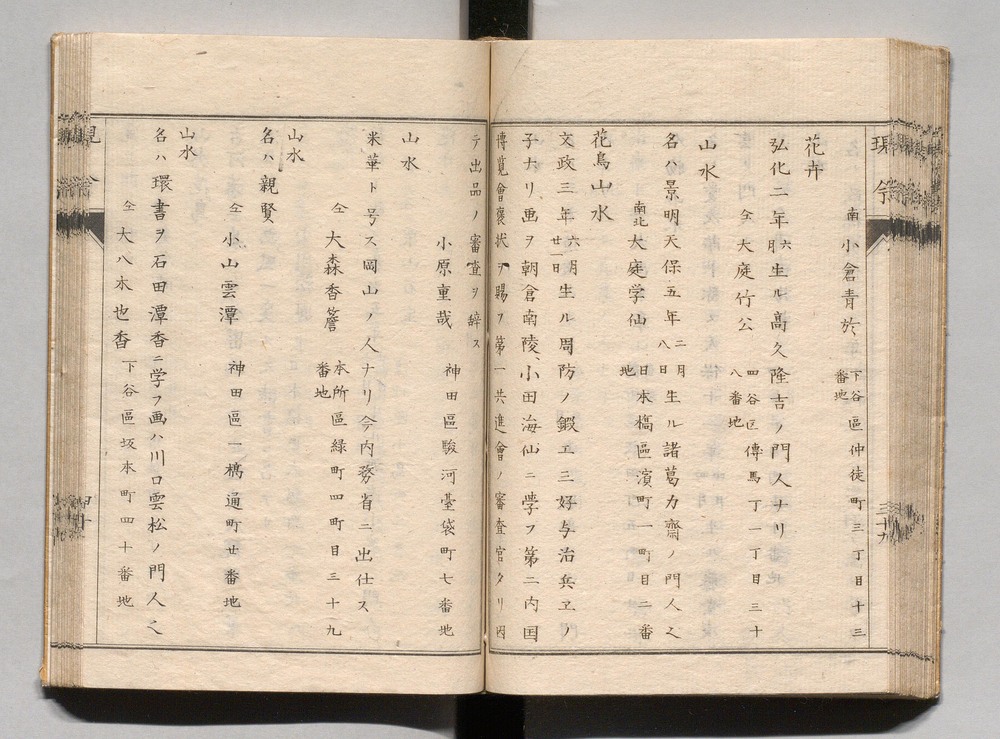 現今
三十九
南 小倉青於 下谷區仲徒町三丁目十三番地
花卉
弘化二年六月生ル高久隆吉ノ門人ナリ
仝 大庭竹公 四谷区傳馬丁一丁目三十八番地
山水
名ハ景明天保五年二月八日生ル諸葛力齋ノ門人之
南北 大庭学仙 日本橋區濱町一町目二番地
花鳥山水
文政三年六月廿一日生ル周防ノ鍜工三好与治兵ヱノ
子ナリ画ヲ朝倉南陵、小田海仙ニ學フ第二内国
博覧會褒状ヲ賜ヲ第一共進會ノ審査官タリ因
テ出品ノ審査ヲ辞ス
小原重哉 神田區駿河臺袋町七番地
山水
米華ト号ス岡山ノ人ナリ今内務省ニ出仕ス
仝 大森香簷 本所區緑町四町目三十九番地
山水
名ハ親賢
仝 小山雲潭 神田區一橋通町廿番地
山水
名ハ環書ヲ石田潭香ニ学フ画ハ川口雲松ノ門人之
仝 大八木也香 下谷區坂本町四十番地
現今
四十